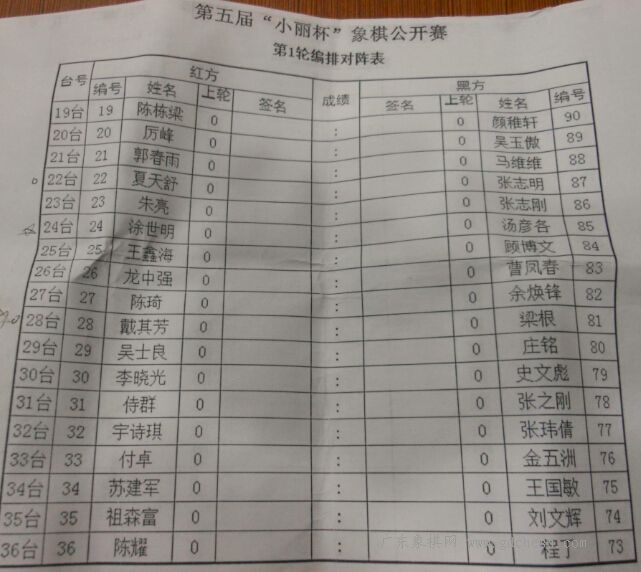 第五届“小丽杯”象棋公开赛
第1轮编排对阵表
台号 红方 成绩 黑方
编号 姓名 上轮 签名 签名 上轮 姓名 编号
19台 19 陈栋梁 0 : 0 颜稚轩 90
20台 20 厉峰 0 : 0 吴玉傲 89
21台 21 郭春雨 0 : 0 马维维 88
22台 22 夏天舒 0 : 0 张志明 87
23台 23 朱亮 0 : 0 张志刚 86
24台 24 涂世明 0 : 0 汤彦各 85
25台 25 王鑫海 0 : 0 顾博文 84
26台 26 龙中强 0 : 0 曹凤春 83
27台 27 陈琦 0 : 0 余焕锋 82
28台 28 戴其芳 0 : 0 梁根 81
29台 29 吴士良 0 : 0 庄铭 80
30台 30 李晓光 0 : 0 史文彪 79
31台 31 侍群 0 : 0 张之刚 78
32台 32 宇诗琪 0 : 0 张玮倩 77
33台 33 付卓 0 : 0 金五洲 76
34台 34 苏建军 0 : 0 王国敏 75
35台 35 祖森富 0 : 0 刘文辉 74
36台 36 陈耀 0 : 0 程了 73
广东象棋网 www.gdchess.com